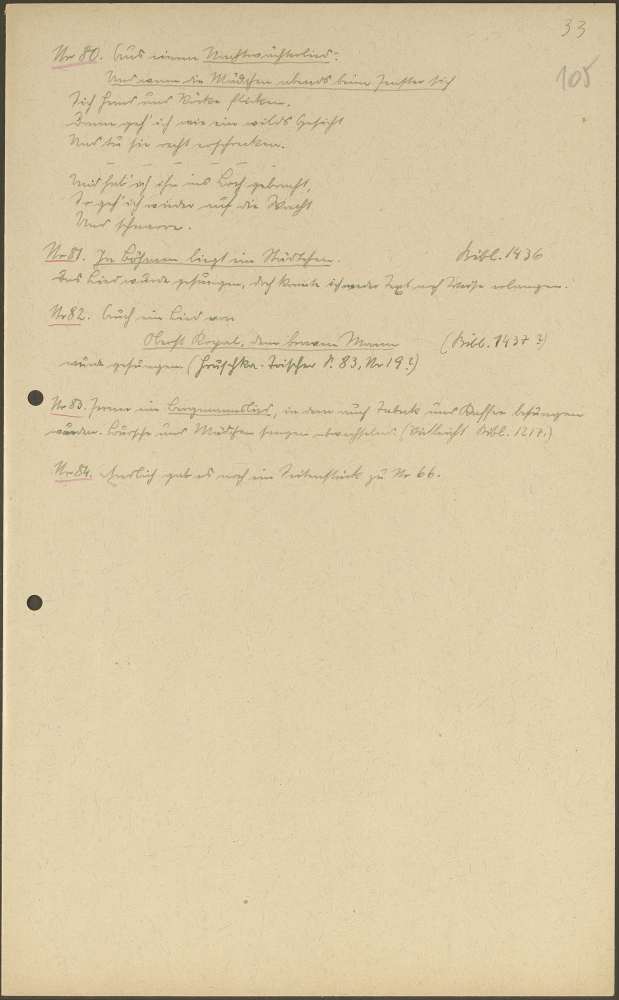 33
105
Nr 80. Aus einem Nachtwächterlied:
Und wenn die Mädchen abends beim Fenster sich
Sich Hemd und Röcke flicken.
Dann geh' ich wie ein wilds Gesicht
Und tu sie recht erschrecken.
Und hab' ich ihn ins Loch gebracht,
So geh' ich wieder auf die Wacht
Und schnarre.
Nr 81. In Böhmen liegt ein Städtchen. Bibl. 1436
Das Lied wurde gesungen, doch konnte ich weder Text noch Weise erlangen.
Nr 82. Auch ein Lied von
Oberst Kopal, dem braven Mann (Bibl. 1437?)
wurde gesungen (Hruschka-Toischer S. 83, Nr 19?)
Nr 83. Ferner ein Bergmannslied, in dem auch Taback und Kaffee besungen
wurden. Bursche und Mädchen sangen abwechselnd. (Vielleicht Bibl. 1217.)
Nr 84. Endlich gab es noch ein Seitenstück zu Nr 66.